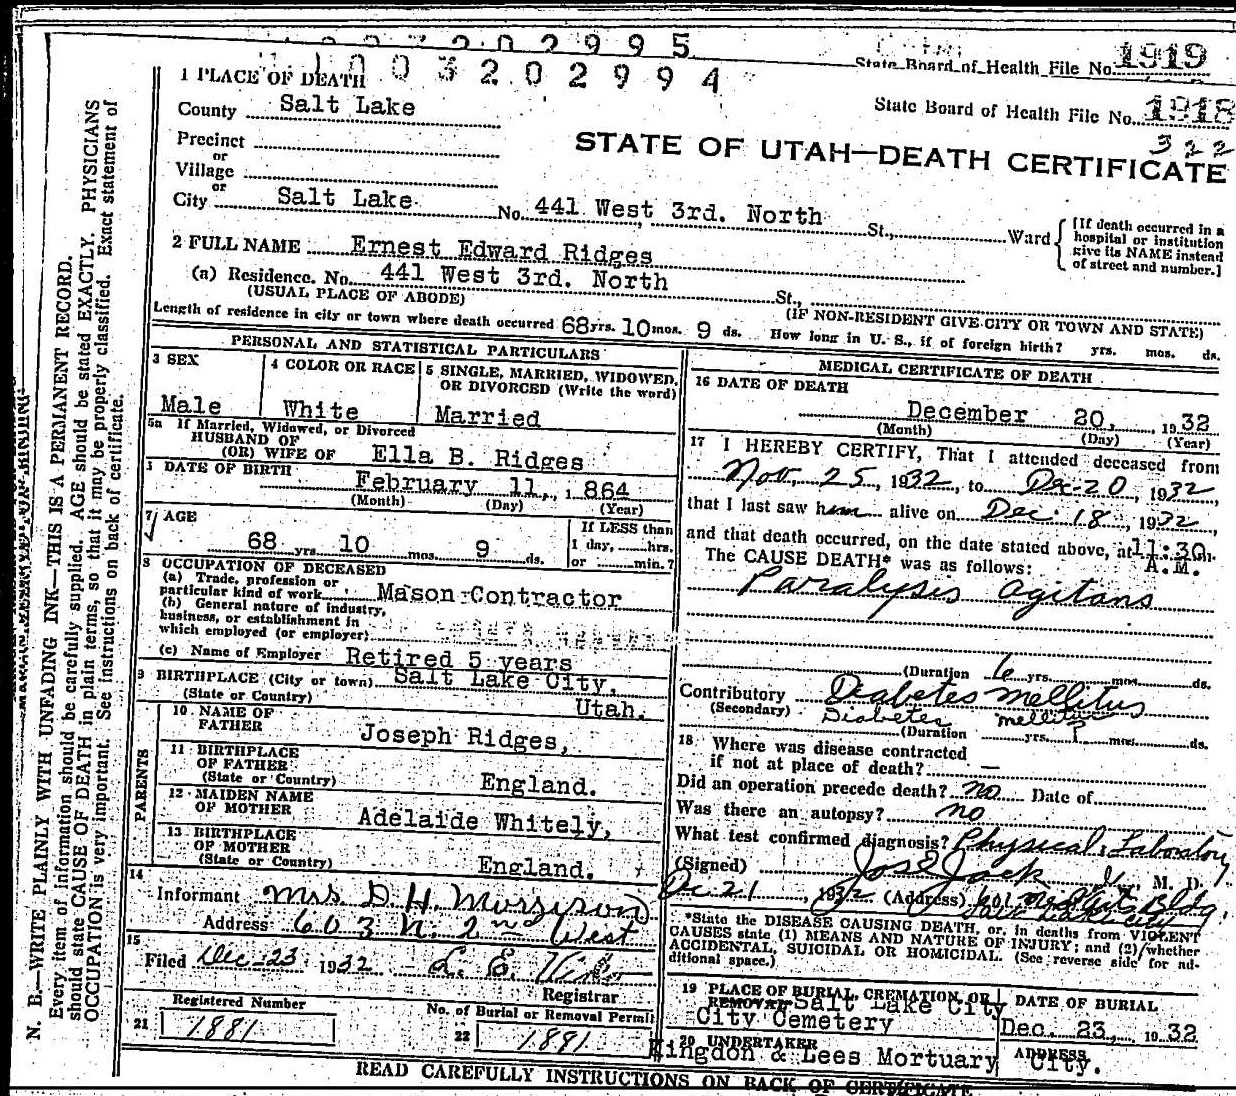 2 0 2 9 9 5
State Board of Health File No. 1919
1 0 0 3 2 0 2 9 9 4
1 PLACE OF DEATH
State Board of Health File No. 1918
County Salt Lake
322
Precinct
STATE OF UTAH—DEATH CERTIFICATE
or
Village
or
City Salt Lake No. 441 West 3rd. North St., Ward
[If death occurred in a hospital or institution give its NAME instead of street and number.]
2 FULL NAME Ernest Edward Ridges
(a) Residence. No. 441 West 3rd. North St.,
(USUAL PLACE OF ABODE) (IF NON-RESIDENT GIVE CITY OR TOWN AND STATE)
Length of residence in city or town where death occurred 68 yrs. 10 mos. 9 ds. How long in U. S., if of foreign birth? yrs. mos. ds.
PERSONAL AND STATISTICAL PARTICULARS
3 SEX
Male
4 COLOR OR RACE
White
5 SINGLE, MARRIED, WIDOWED,
OR DIVORCED (Write the word)
Married
5a If Married, Widowed, or Divorced
HUSBAND OF
(OR) WIFE OF Ella B. Ridges
DATE OF BIRTH
February 11, 1864
(Month) (Day) (Year)
7 AGE
68 yrs. 10 mos. 9 ds.
If LESS than
1 day, hrs.
or min.?
8 OCCUPATION OF DECEASED
(a) Trade, profession or
particular kind of work Mason-Contractor
(b) General nature of industry,
business, or establishment in
which employed (or employer)
(c) Name of Employer Retired 5 years
9 BIRTHPLACE (City or town) Salt Lake City,
(State or Country) Utah.
PARENTS
10 NAME OF
FATHER Joseph Ridges,
11 BIRTHPLACE
OF FATHER
(State or Country) England.
12 MAIDEN NAME
OF MOTHER Adelaide Whitely,
13 BIRTHPLACE
OF MOTHER
(State or Country) England.
14
Informant Mrs D. H. Morrison
Address 603 N. 2nd West
15
Filed Dec-23 1932 L. E.
Registrar
Registered Number
21 1881
No. of Burial or Removal Permit
22 1891
MEDICAL CERTIFICATE OF DEATH
16 DATE OF DEATH
December 20, 1932
(Month) (Day) (Year)
17 I HEREBY CERTIFY, That I attended deceased from
Nov. 25, 1932, to Dec-20, 1932,
that I last saw him alive on Dec. 18, 1932,
and that death occurred, on the date stated above, at 11:30 m.
A.M.
The CAUSE DEATH* was as follows:
Paralysis Agitans
(Duration 6 yrs. mos. ds.
Contributory Diabetes mellitus
(Secondary) Diabetes mellitus
(Duration yrs. mos. ds.
18 Where was disease contracted
if not at place of death? —
Did an operation precede death? no Date of
Was there an autopsy? no
What test confirmed diagnosis? Physical, Laboratory
(Signed) Jos E Jack, M. D.
Dec. 21, 1932 (Address) 601 Bldg.
Salt Lake City
*State the DISEASE CAUSING DEATH, or, in deaths from VIOLENT
CAUSES state (1) MEANS AND NATURE OF INJURY; and (2) whether
ACCIDENTAL, SUICIDAL OR HOMICIDAL. (See reverse side for ad-
ditional space.)
19 PLACE OF BURIAL, CREMATION, OR
REMOVAL Salt Lake City
City Cemetery
DATE OF BURIAL
Dec. 23, 1932
20 UNDERTAKER
Kingdon & Lees Mortuary
ADDRESS
City.
READ CAREFULLY INSTRUCTIONS ON BACK OF CERTIFICATE
N. B.—WRITE PLAINLY WITH UNFADING INK—THIS IS A PERMANENT RECORD.
Every item of information should be carefully supplied. AGE should be stated EXACTLY. PHYSICIANS
should state CAUSE OF DEATH in plain terms, so that it may be properly classified. Exact statement of
OCCUPATION is very important. See instructions on back of certificate.